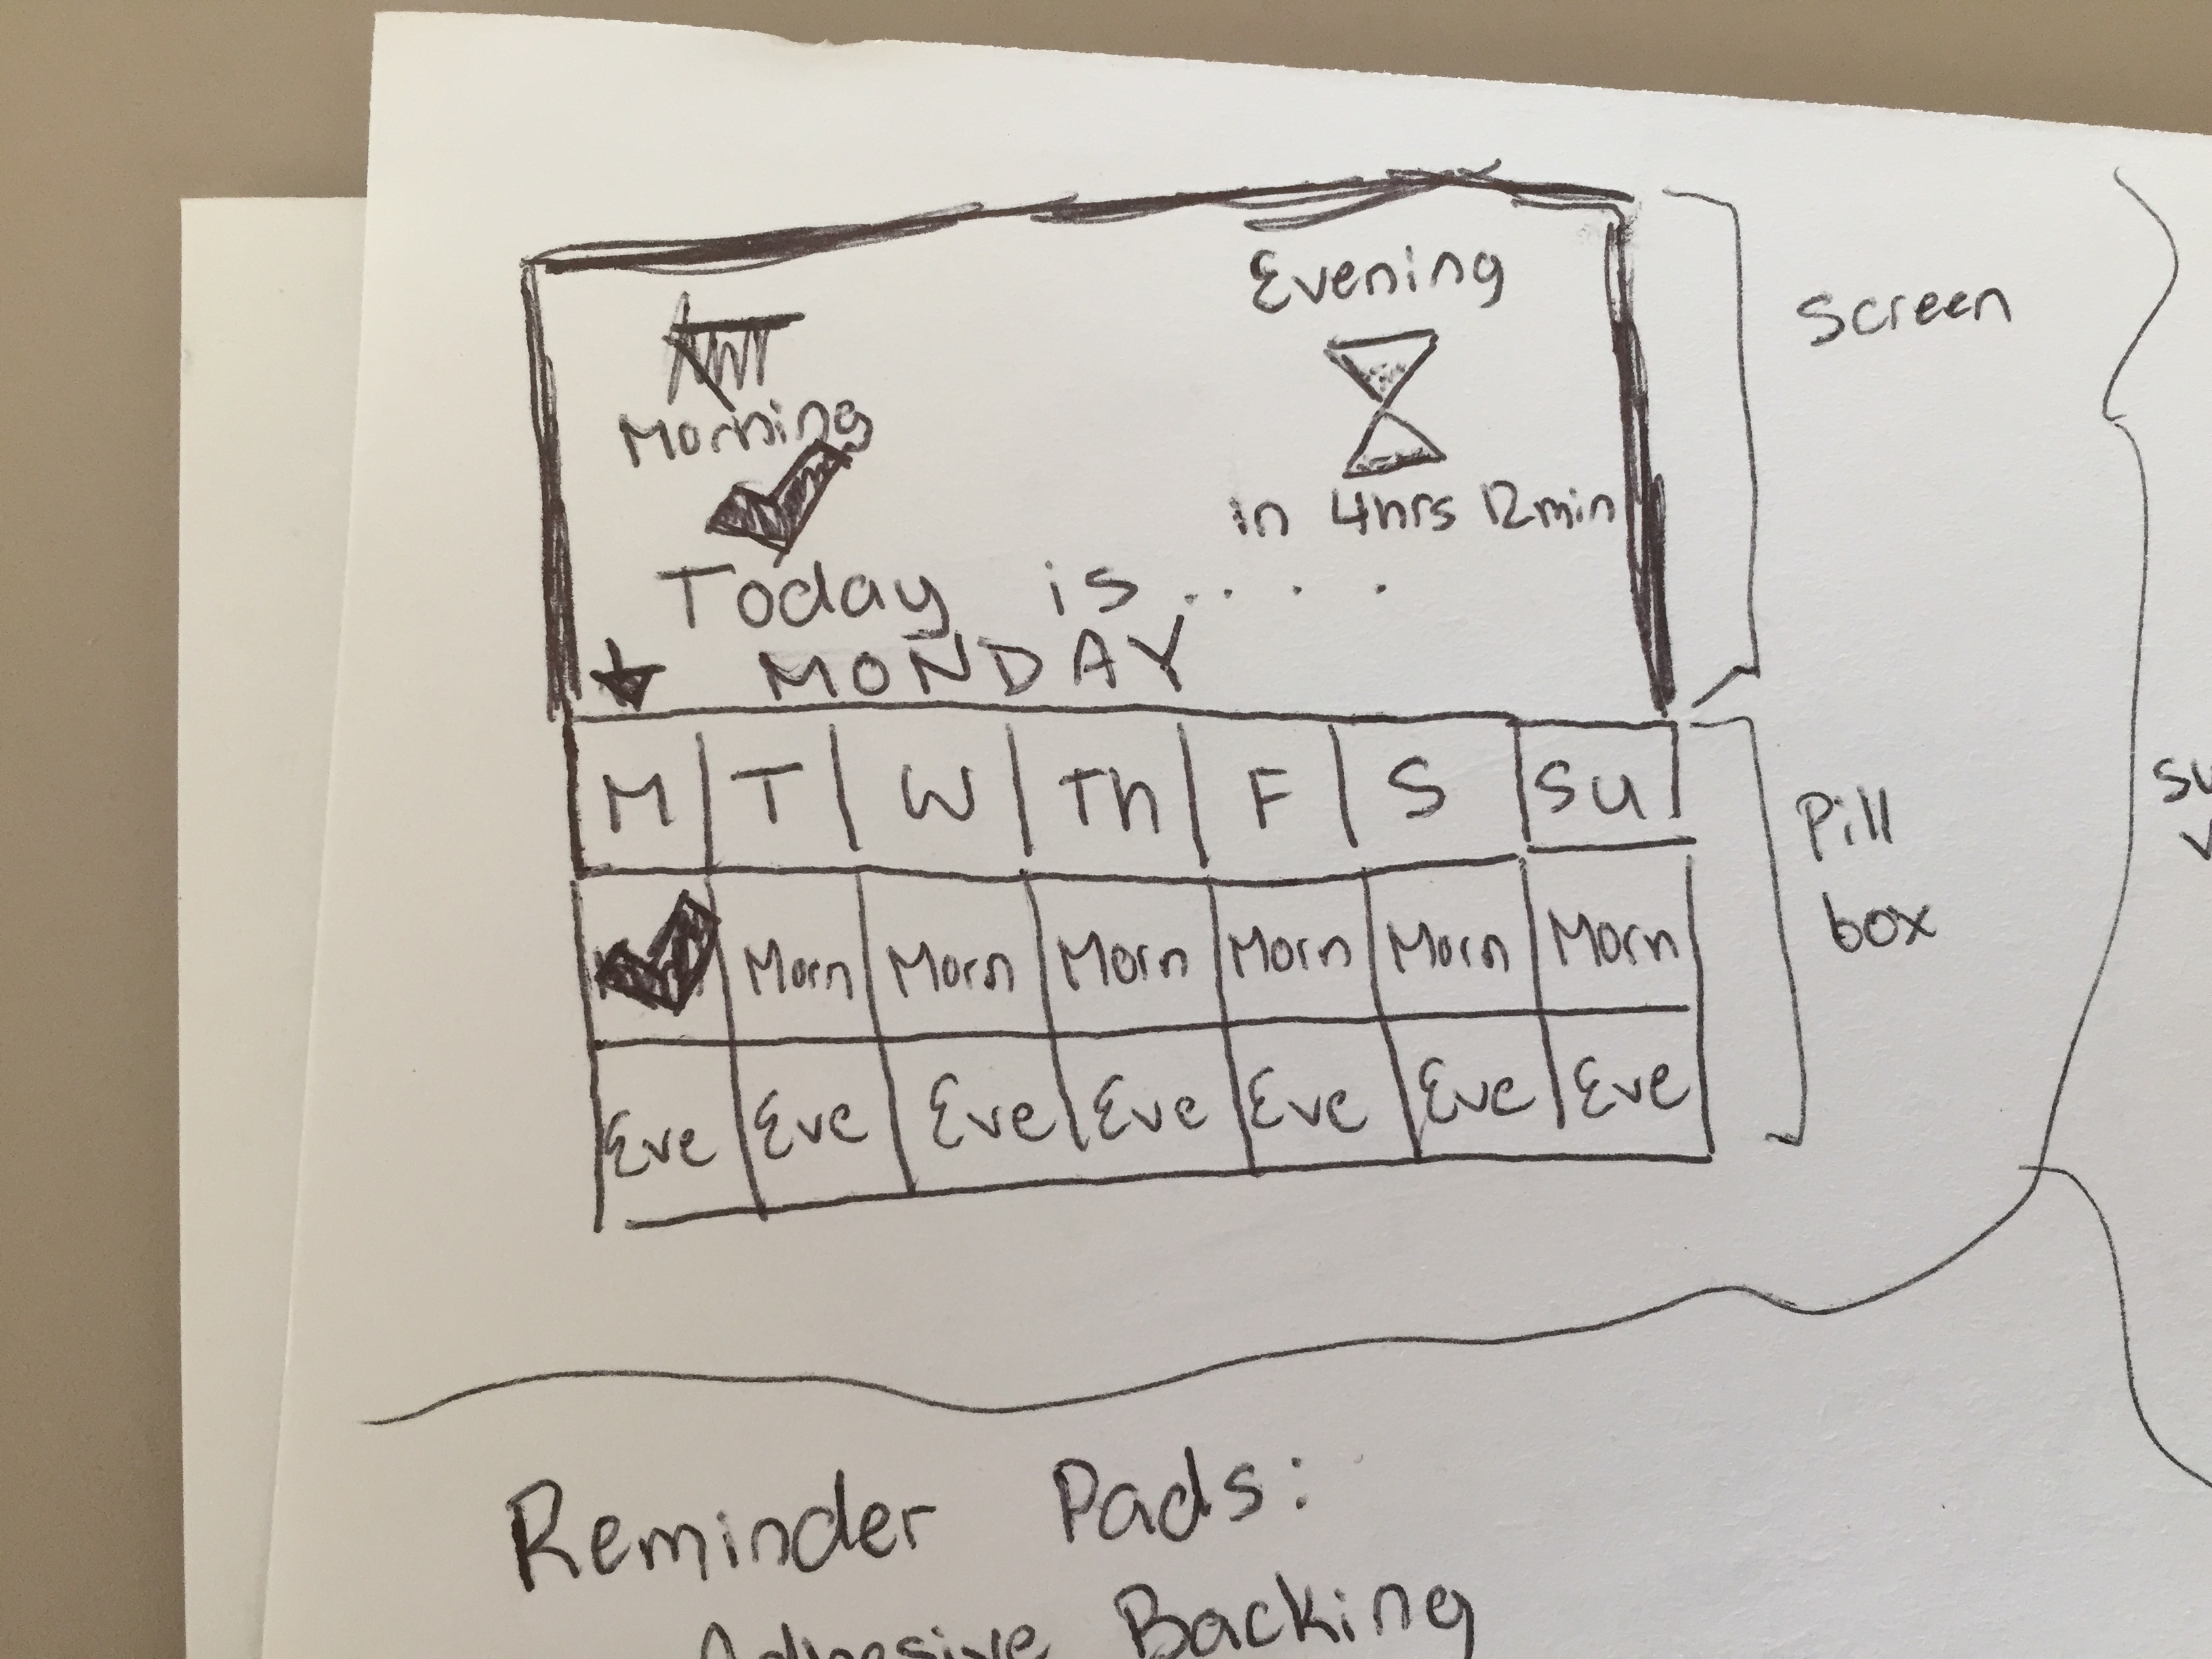 Evening
Morning
in 4hrs 12min
Today is . . . .
MONDAY
M T W Th F S Su
Morn Morn Morn Morn Morn Morn
Eve Eve Eve Eve Eve Eve Eve
Screen
Pill
box
Reminder Pads:
Adhesive Backing